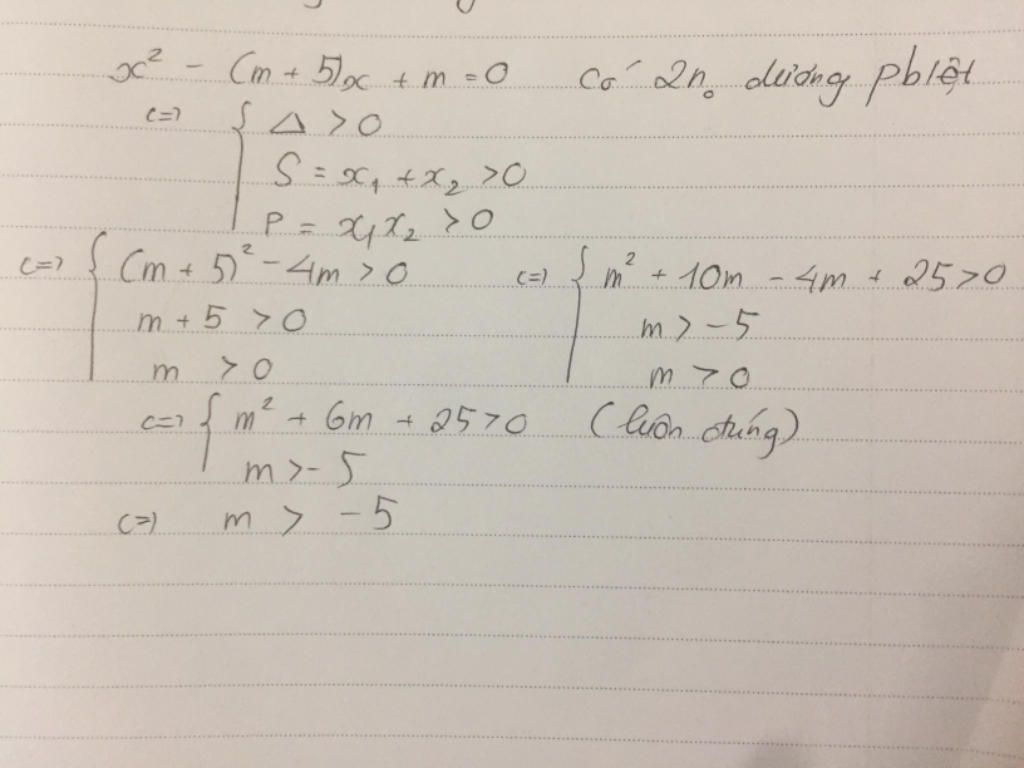 x² - (m + 5)x + m = 0 Có 2n₀ dương pbiệt
<=> { Δ > 0
S = x₁ + x₂ > 0
P = x₁x₂ > 0
<=> { (m + 5)² - 4m > 0 <=> { m² + 10m - 4m + 25 > 0
m + 5 > 0 m > -5
m > 0 m > 0
<=> { m² + 6m + 25 > 0 (luôn đúng)
m > -5
<=> m > -5